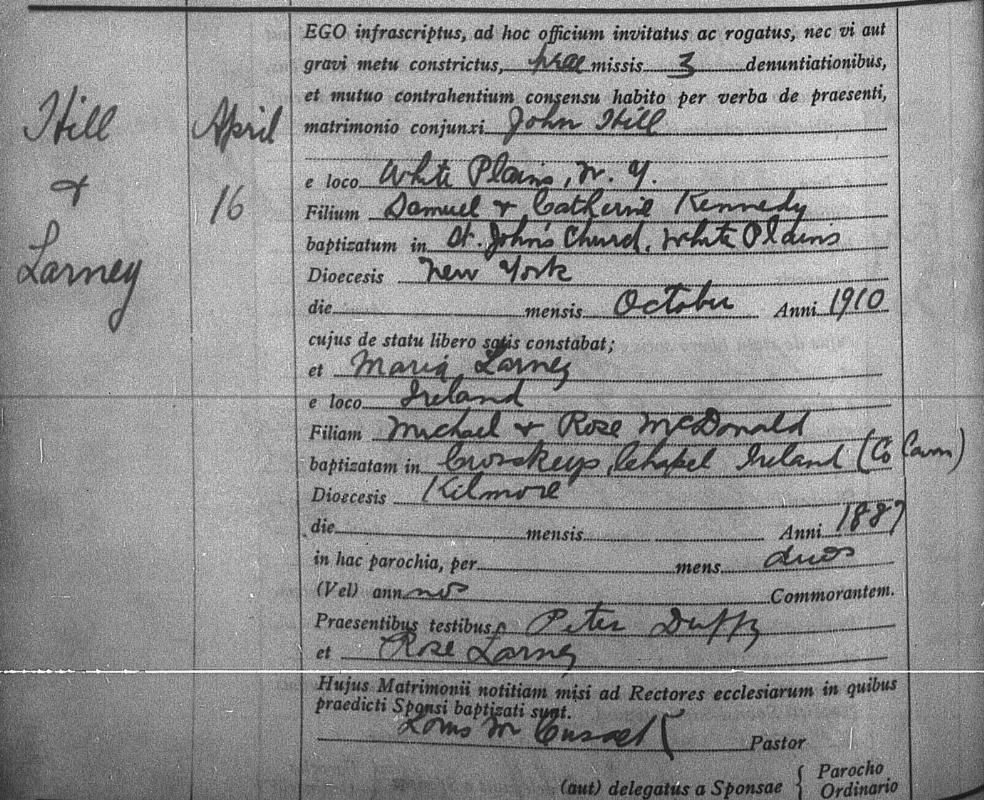 Hill
&
Larney
April
16
EGO infrascriptus, ad hoc officium invitatus ac rogatus, nec vi aut
gravi metu constrictus, prae missis 3 denuntiationibus,
et mutuo contrahentium consensu habito per verba de praesenti,
matrimonio conjunxi John Hill
e loco White Plains, N. Y.
Filium Samuel & Catherine Kennedy
baptizatum in St. John's Church, White Plains
Dioecesis New York
die mensis October Anni 1910
cujus de statu libero satis constabat;
et Maria Larney
e loco Ireland
Filiam Michael & Rose McDonald
baptizatam in Crosskeys, Chapel Ireland (Co Cavan)
Dioecesis Kilmore
die mensis Anni 1887
in hac parochia, per mens duos
(Vel) ann nos Commorantem.
Praesentibus testibus, Peter Duffy
et Rose Larney
Hujus Matrimonii notitiam misi ad Rectores ecclesiarum in quibus
praedicti Sponsi baptizati sunt.
Louis M Pastor
(aut) delegatus a Sponsae { Parocho
Ordinario